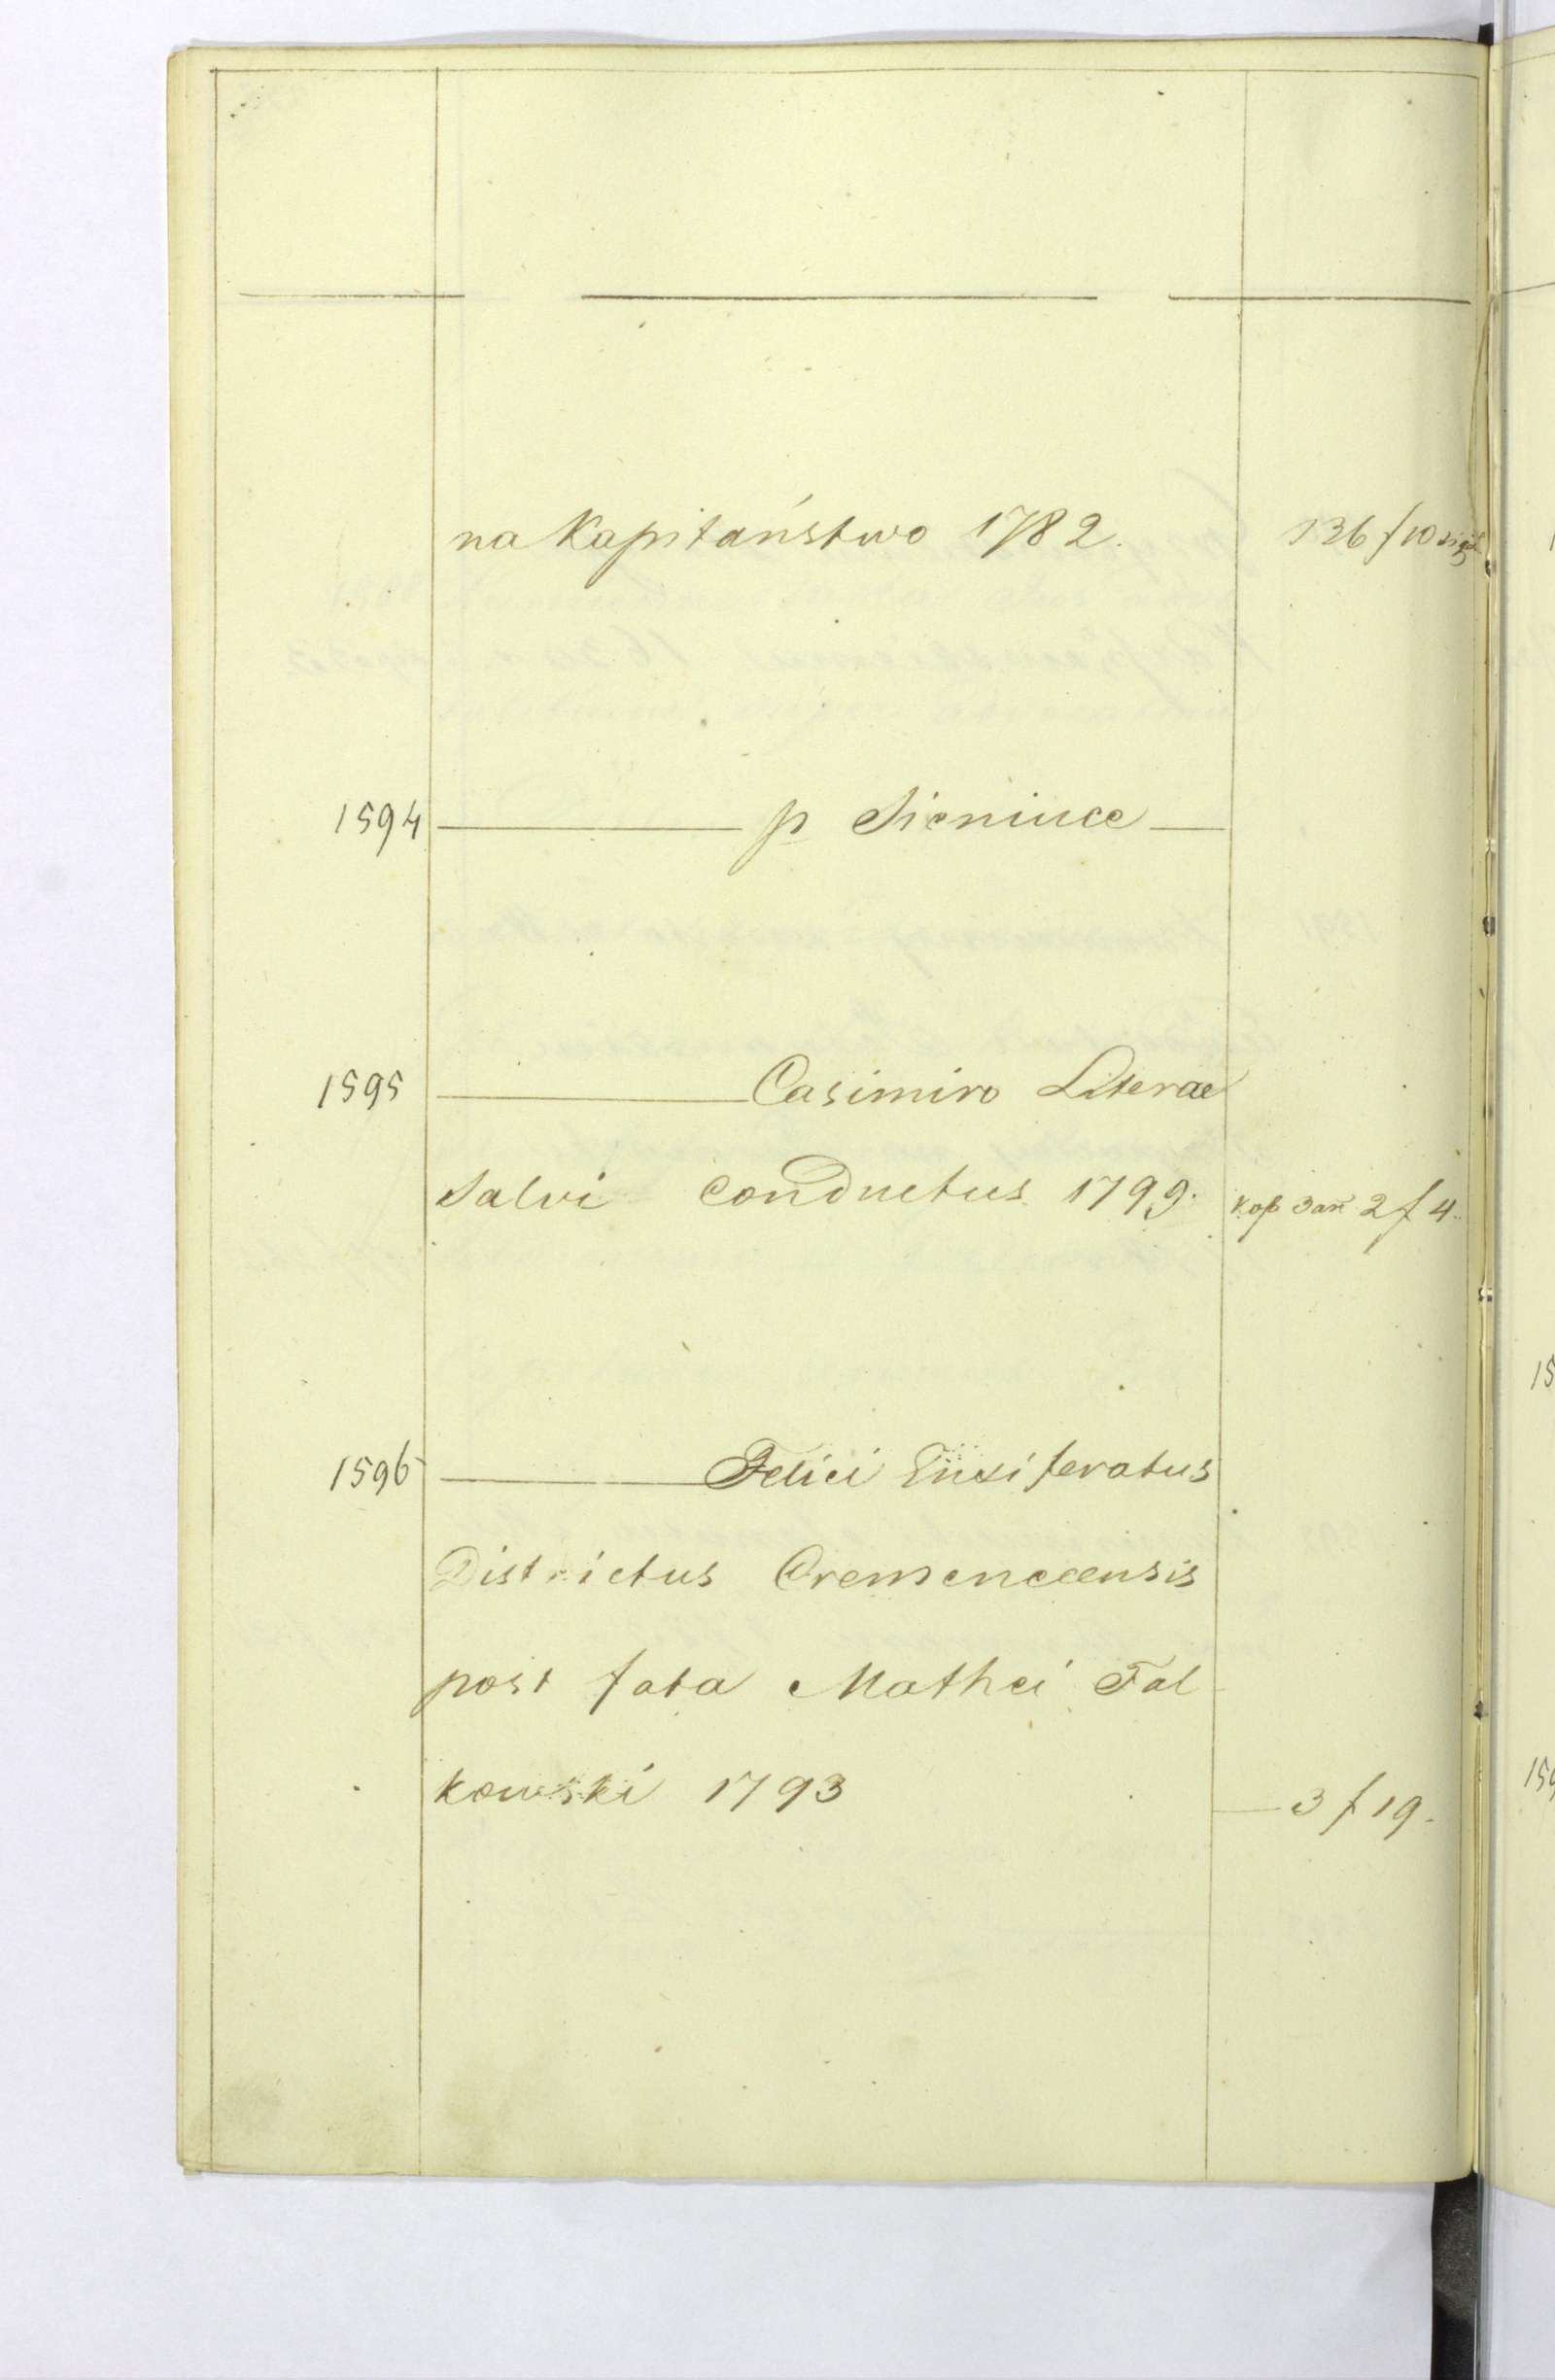 na Kapitaństwo 1782. 136 f 10
1594 p Sieniuce
1595 Casimiro Literae
Salvi conductus 1799. кор зап 2 f 4.
1596 Felici Ensiferatus
Districtus Cremenecensis
post fata Mathei Fal
kowski 1793 3 f 19.